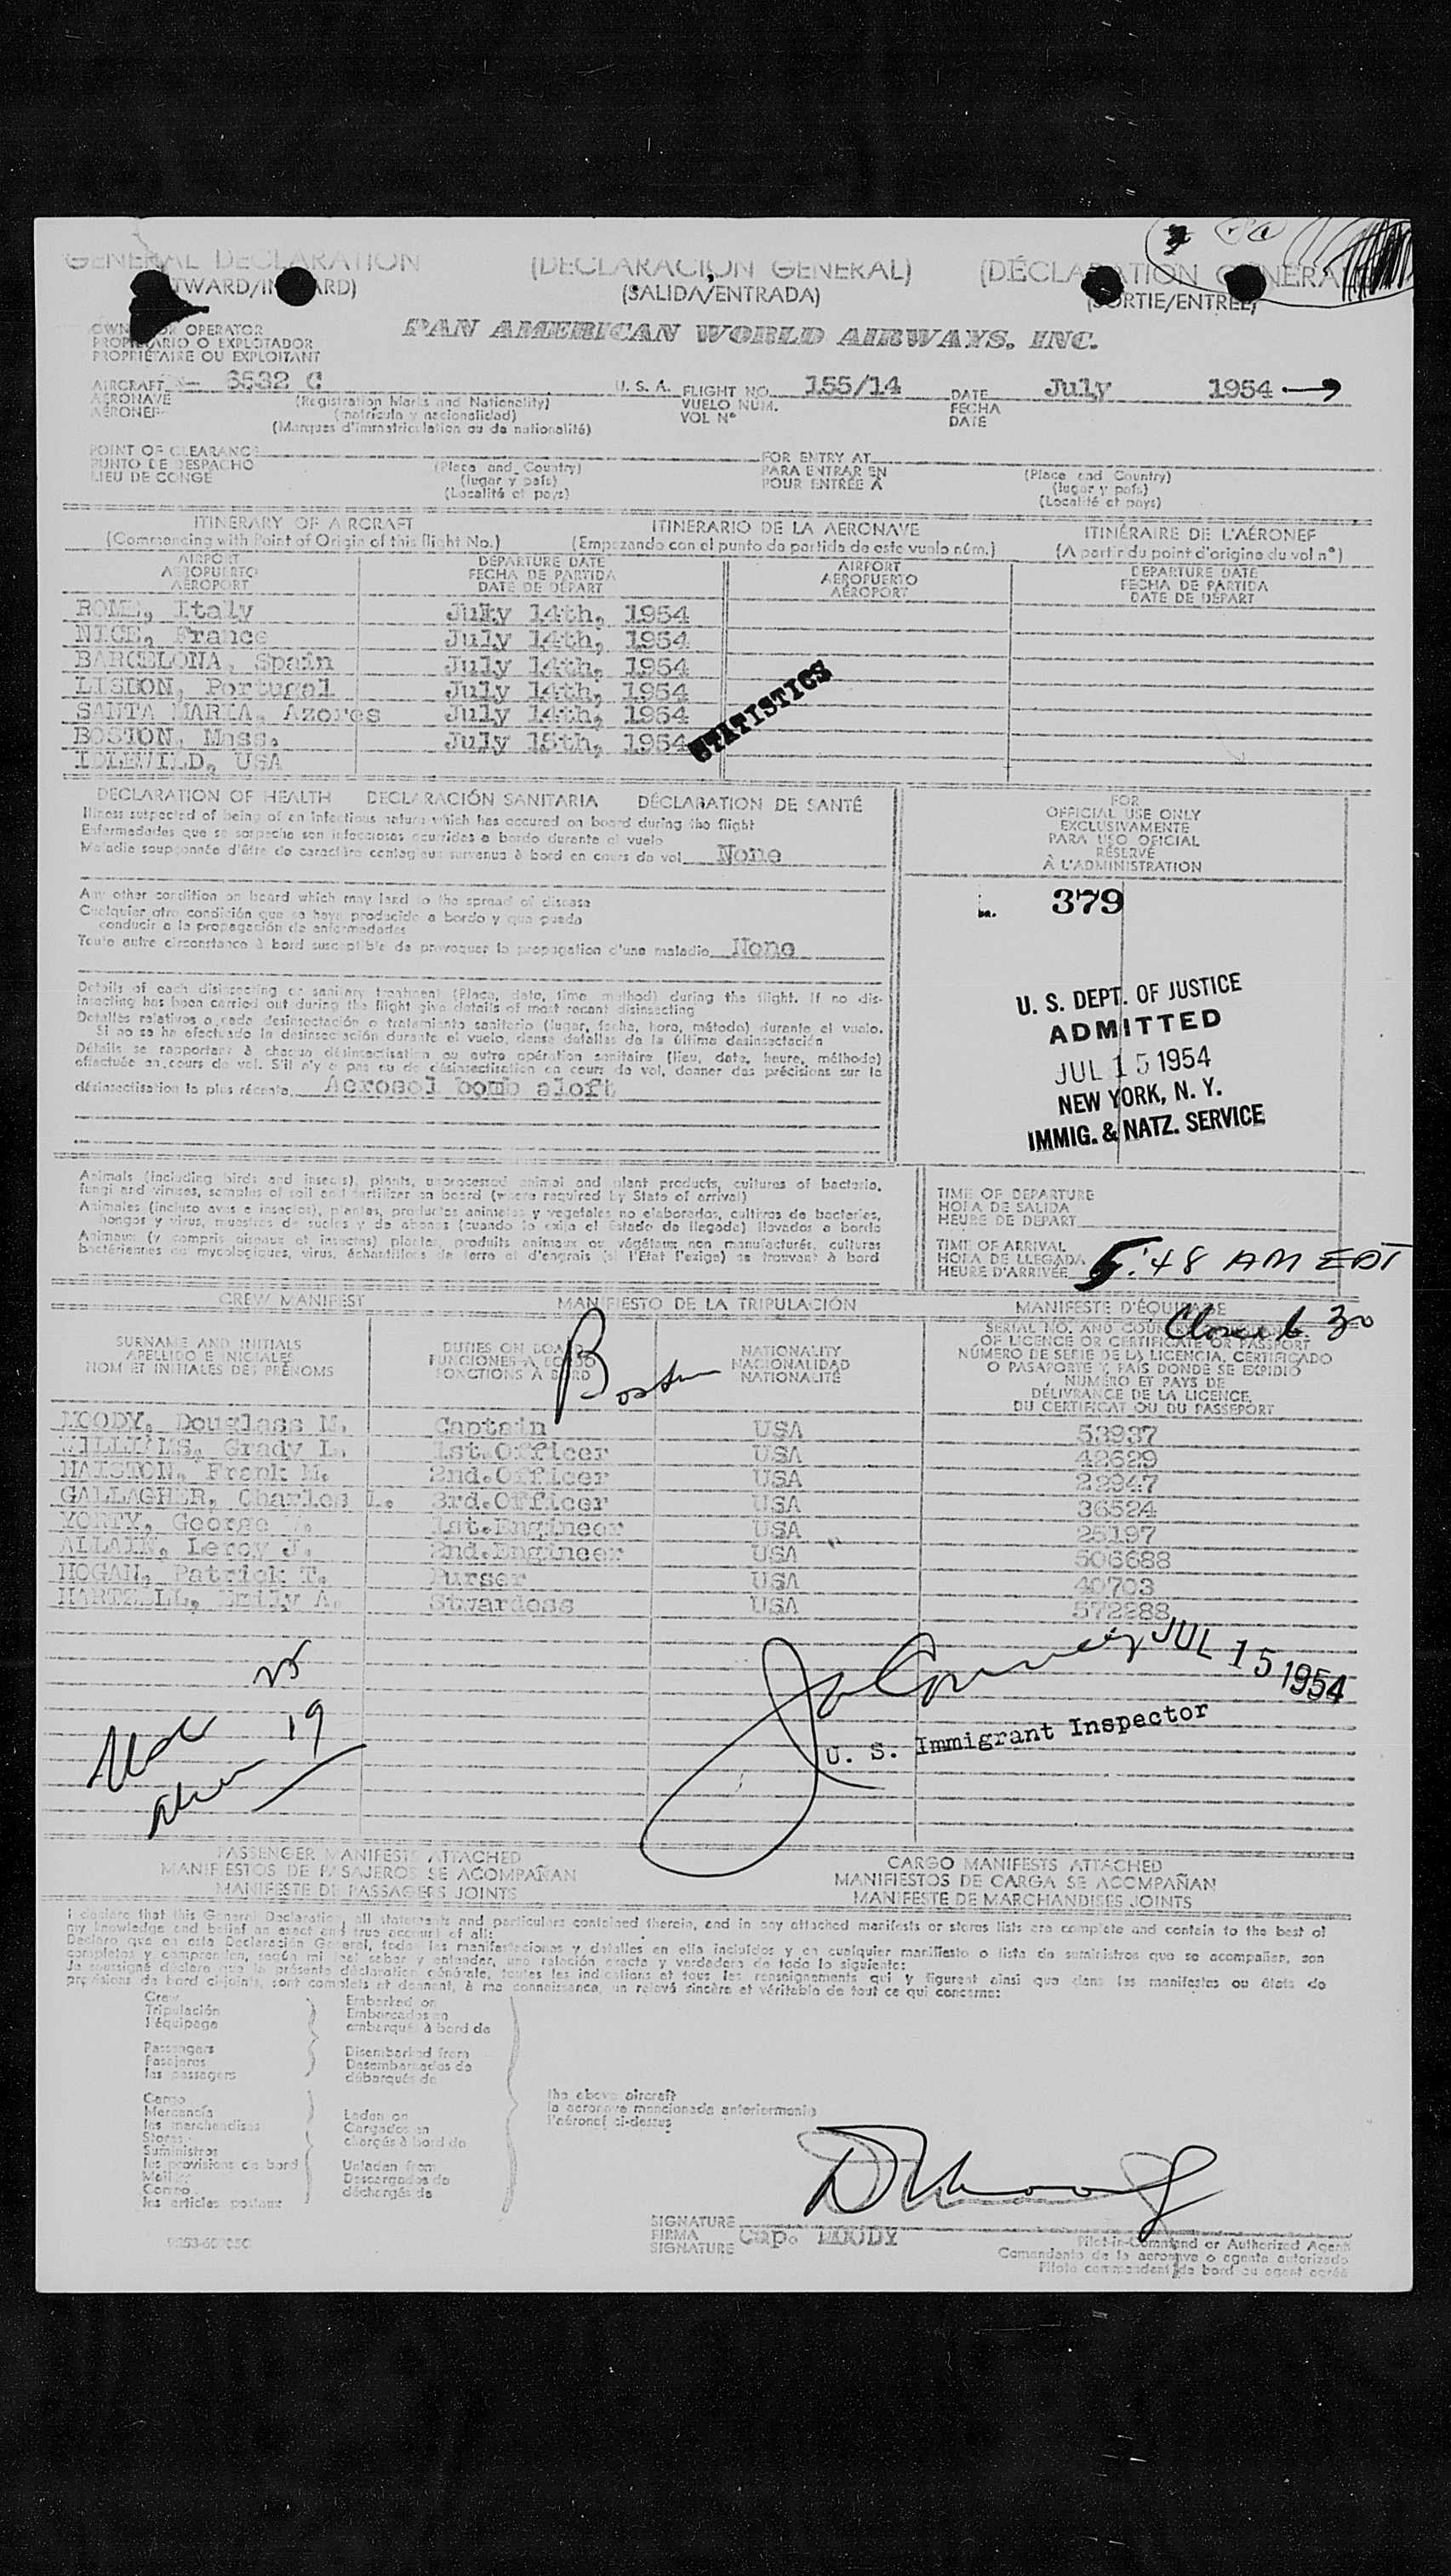 GENERAL DECLARATION (DECLARACIÓN GENERAL) (DÉCLARATION GÉNÉRA
(SALIDA/ENTRADA)
OPERATOR
PROPIETARIO O EXPLOTADOR
PROPRIÉTAIRE OU EXPLOITANT
PAN AMERICAN WORLD AIRWAYS, INC.
AIRCRAFT N- 6532 C U. S. A. FLIGHT NO. 155/14 DATE July 1954
AERONAVE (Registration Marks and Nationality) VUELO NUM. FECHA
AÉRONEF (matrícula y nacionalidad) VOL Nº DATE
(Marques d'immatriculation ou de nationalité)
POINT OF CLEARANCE FOR ENTRY AT
PUNTO DE DESPACHO (Place and Country) PARA ENTRAR EN (Place and Country)
LIEU DE CONGÉ (lugar y país) POUR ENTRÉE À (lugar y país)
(Localité et pays) (Localité et pays)
ITINERARY OF AIRCRAFT ITINERARIO DE LA AERONAVE ITINÉRAIRE DE L'AÉRONEF
(Commencing with Point of Origin of this flight No.) (Empezando con el punto de partida de este vuelo núm.) (A partir du point d'origine du vol nº)
AIRPORT DEPARTURE DATE AIRPORT DEPARTURE DATE
AEROPUERTO FECHA DE PARTIDA AEROPUERTO FECHA DE PARTIDA
AÉROPORT DATE DE DÉPART AÉROPORT DATE DE DÉPART
ROME, Italy July 14th, 1954
NICE, France July 14th, 1954
BARCELONA, Spain July 14th, 1954
LISBON, Portugal July 14th, 1954
SANTA MARIA, Azores July 14th, 1954
BOSTON, Mass. July 15th, 1954
IDLEWILD, USA
STATISTICS
DECLARATION OF HEALTH DECLARACIÓN SANITARIA DÉCLARATION DE SANTÉ
Illness suspected of being of an infectious nature which has occured on board during the flight
Enfermedades que se sospecha son infecciosas ocurridas a bordo durante el vuelo
Maladie soupçonnée d'être de caractère contagieux survenue à bord en cours de vol None
Any other condition on board which may lead to the spread of disease
Cualquier otra condición que se haya producido a bordo y que pueda
conducir a la propagación de enfermedades
Toute autre circonstance à bord susceptible de provoquer la propagation d'une maladie None
Details of each disinsecting or sanitary treatment (Place, date, time method) during the flight. If no dis-
insecting has been carried out during the flight give details of most recent disinsecting
Detalles relativos a cada desinsectación o tratamiento sanitario (lugar, fecha, hora, método) durante el vuelo.
Si no se ha efectuado la desinsectación durante el vuelo, dense detalles de la última desinsectación
Détails se rapportant à chaque désinsectisation ou autre opération sanitaire (lieu, date, heure, méthode)
effectuée en cours de vol. S'il n'y a pas eu de désinsectisation en cours de vol, donner des précisions sur la
désinsectisation la plus récente Aerosol bomb aloft
FOR
OFFICIAL USE ONLY
EXCLUSIVAMENTE
PARA USO OFICIAL
RÉSERVÉ
À L'ADMINISTRATION
379
U. S. DEPT. OF JUSTICE
ADMITTED
JUL 15 1954
NEW YORK, N. Y.
IMMIG. & NATZ. SERVICE
Animals (including birds and insects), plants, unprocessed animal and plant products, cultures of bacteria,
fungi and viruses, samples of soil and fertilizer on board (where required by State of arrival)
Animales (incluso aves e insectos), plantas, productos animales y vegetales no elaborados, cultivos de bacterias,
hongos y virus, muestras de suelos y de abonos (cuando lo exija el Estado de llegada) llevados a bordo
Animaux (y compris oiseaux et insectes) plantes, produits animaux ou végétaux non manufacturés, cultures
bactériennes ou mycologiques, virus, échantillons de terre et d'engrais (si l'Etat l'exige) se trouvant à bord
TIME OF DEPARTURE
HORA DE SALIDA
HEURE DE DÉPART
TIME OF ARRIVAL
HORA DE LLEGADA
HEURE D'ARRIVÉE 5:48 AM EDT
CREW MANIFEST MANIFIESTO DE LA TRIPULACIÓN MANIFESTE D'ÉQUIPAGE
Boston
SURNAME AND INITIALS
APELLIDO E INICIALES
NOM ET INITIALES DES PRÉNOMS
DUTIES ON BOARD
FUNCIONES A BORDO
FONCTIONS À BORD
NATIONALITY
NACIONALIDAD
NATIONALITÉ
OF LICENCE OR CERTIFICATE OR PASSPORT
NÚMERO DE SERIE DE LA LICENCIA, CERTIFICADO
O PASAPORTE Y PAÍS DONDE SE EXPIDIÓ
NUMÉRO ET PAYS DE
DÉLIVRANCE DE LA LICENCE
DU CERTIFICAT OU DU PASSEPORT
MOODY, Douglass M. Captain USA 53937
WILLIAMS, Grady L. 1st.Officer USA 42629
HAISTON, Frank M. 2nd.Officer USA 22947
GALLAGHER, Charles L. 3rd.Officer USA 36524
YORTY, George 1st.Engineer USA 25197
ALLAIN, Leroy J. 2nd.Engineer USA 506688
HOGAN, Patrick T. Purser USA 40703
HARTZELL, Emily A. Stwardess USA 572288
JUL 15 1954
U. S. Immigrant Inspector
25
19
PASSENGER MANIFESTS ATTACHED
MANIFIESTOS DE PASAJEROS SE ACOMPAÑAN
MANIFESTE DE PASSAGERS JOINTS
CARGO MANIFESTS ATTACHED
MANIFIESTOS DE CARGA SE ACOMPAÑAN
MANIFESTE DE MARCHANDISES JOINTS
I declare that this General Declaration, all statements and particulars contained therein, and in any attached manifests or stores lists are complete and contain to the best of
my knowledge and belief an exact and true account of all:
Declaro que en esta Declaración General, todas las manifestaciones y detalles en ella incluidos y en cualquier manifiesto o lista de suministros que se acompañen, son
completos y comprenden, según mi leal saber y entender, una relación exacta y verdadera de todo lo siguiente:
Je soussigné déclare que la présente déclaration générale, toutes les indications et tous les renseignements qui y figurent ainsi que dans les manifestes ou états de
provisions de bord ci-joints, sont complets et donnent, à ma connaissance, un relevé sincère et véritable de tout ce qui concerne:
Crew
Tripulación
l'équipage
Embarked on
Embarcados en
embarqués à bord de
Passengers
Pasajeros
les passagers
Disembarked from
Desembarcados de
débarqués de
Cargo
Mercancía
les marchandises
Stores
Suministros
les provisions de bord
Mail
Correo
les articles postaux
Laden on
Cargados en
chargés à bord de
Unladen from
Descargados de
déchargés de
the above aircraft
la aeronave mencionada anteriormente
l'aéronef ci-dessus
SIGNATURE
FIRMA
SIGNATURE Cap. MOODY
Pilot-in-Command or Authorized Agent
Comandante de la aeronave o agente autorizado
Pilote commandant de bord ou agent agréé